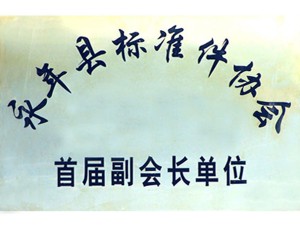 永年县标准件协会
首届副会长单位